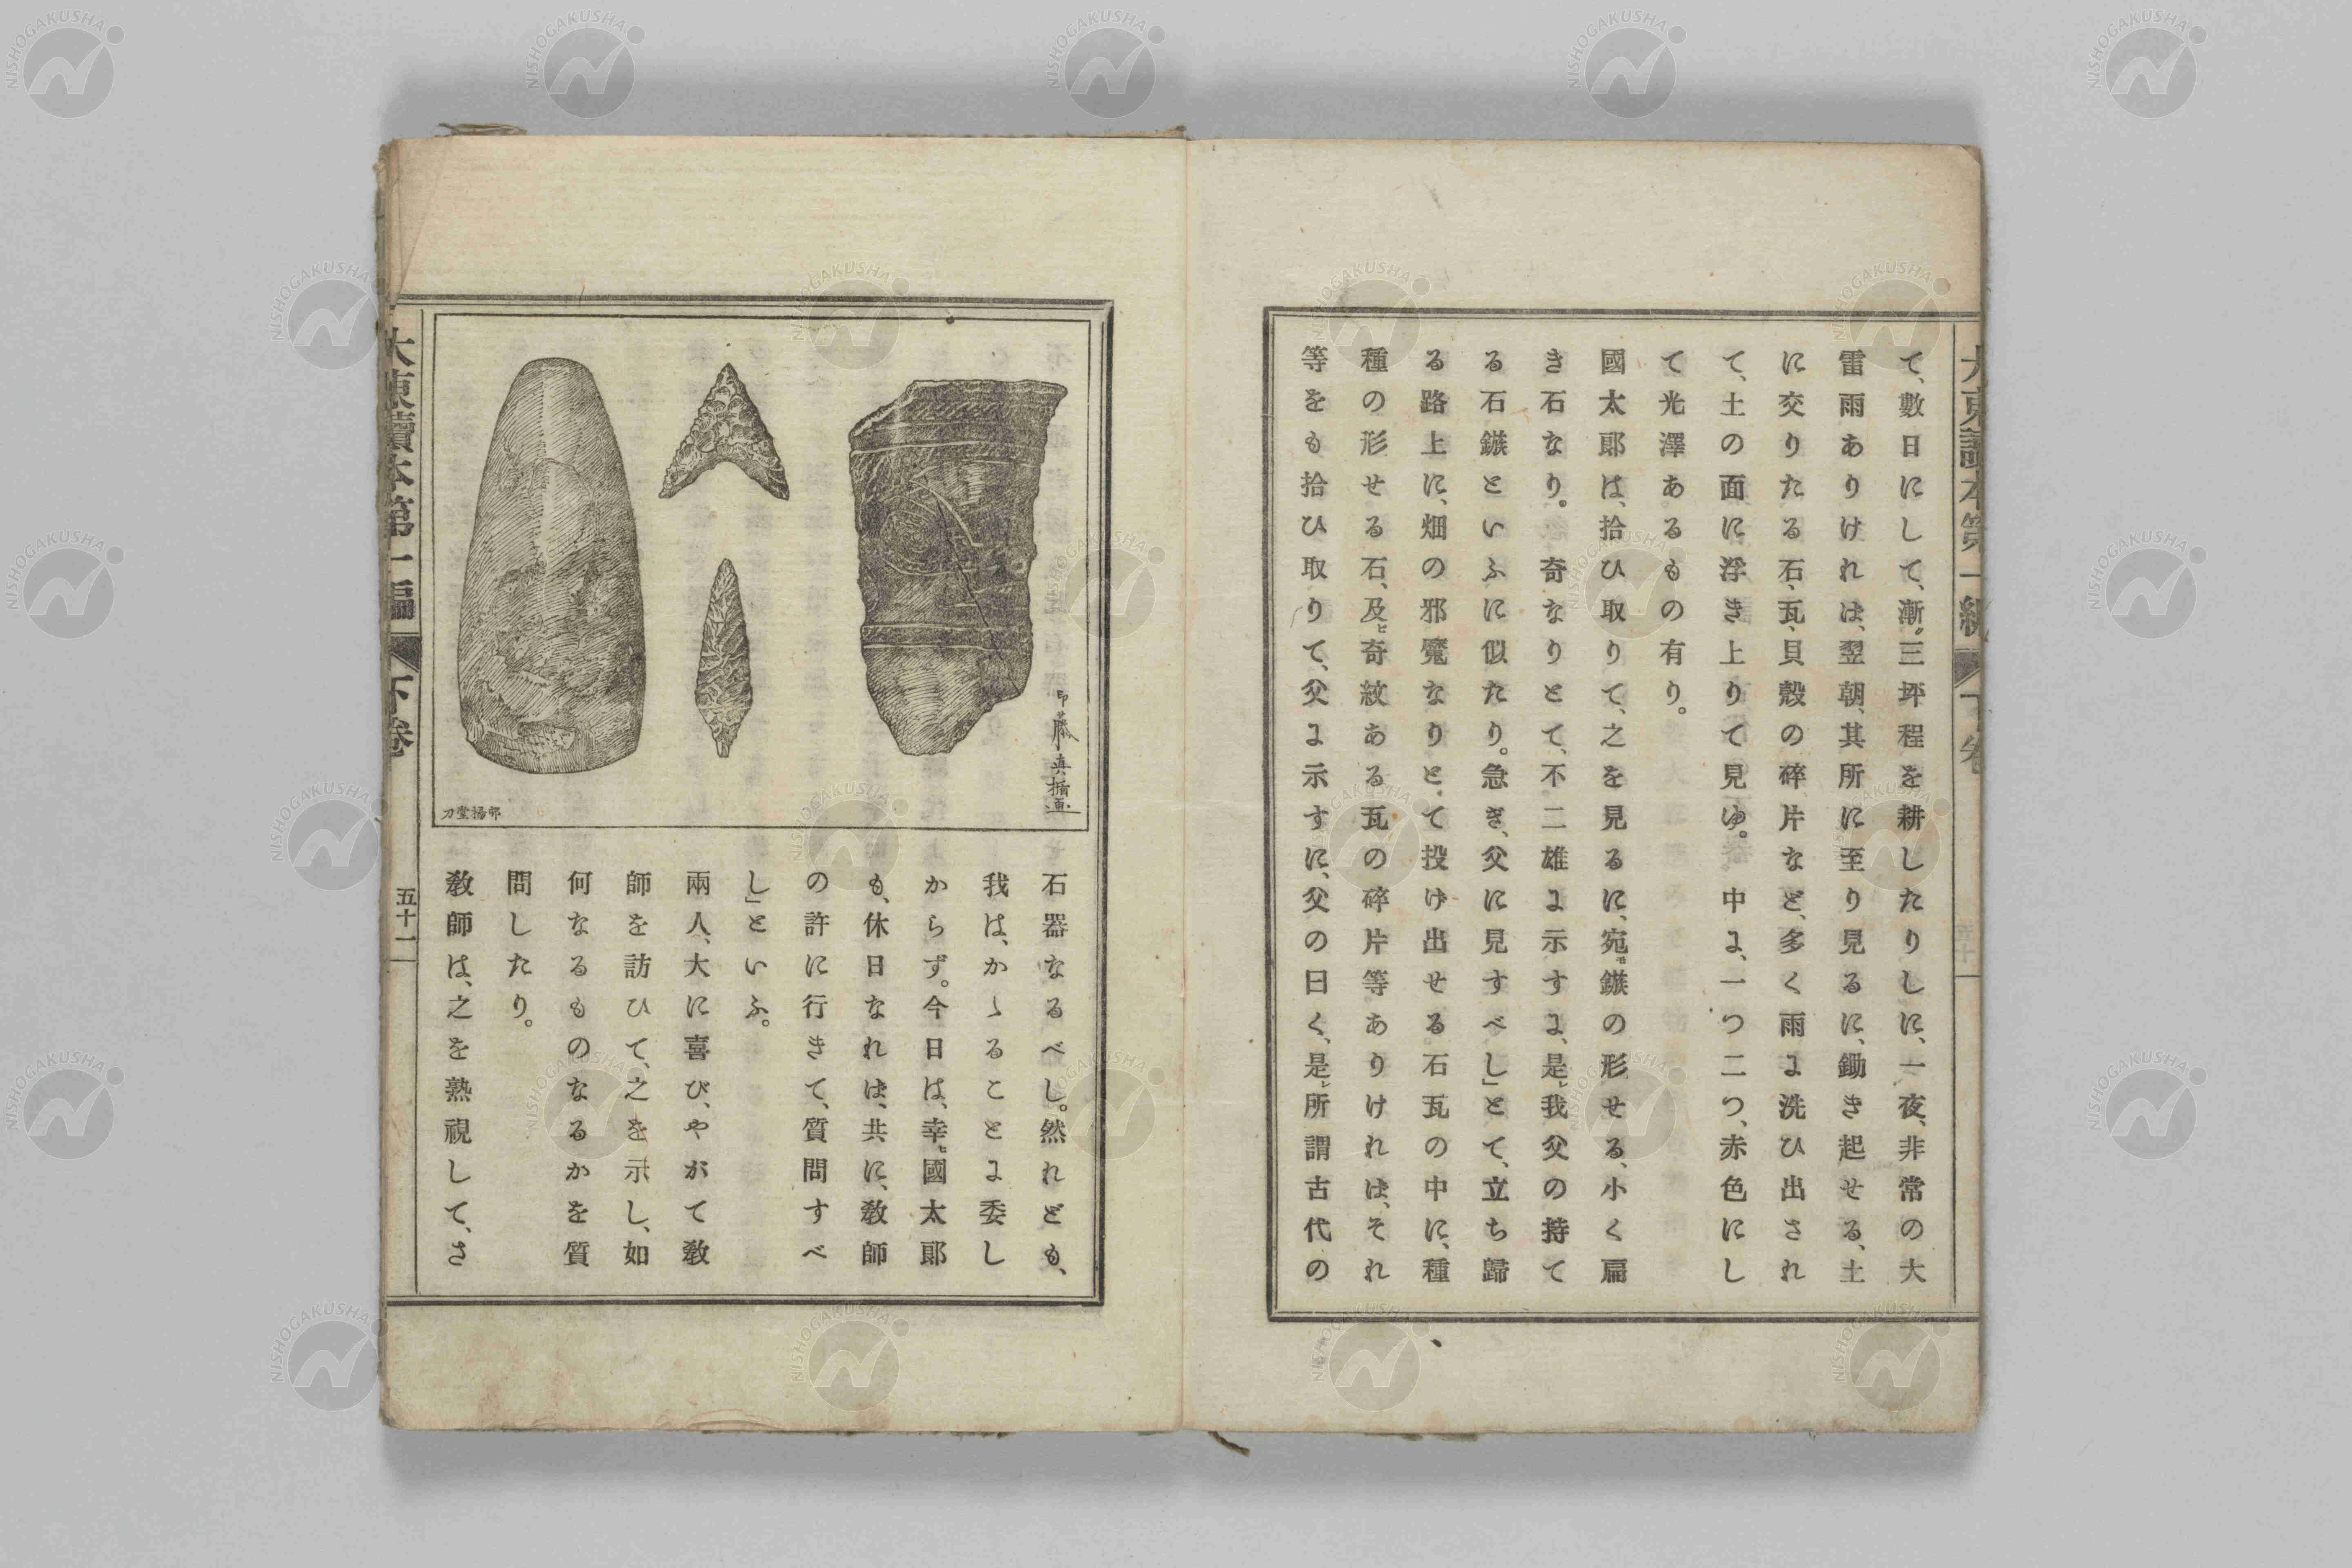 て、數日にして、漸ク三坪程を耕したりしに、一夜、非常の大
雷雨ありければ、翌朝、其所に至り見るに、鋤き起せる、土
に交りたる石、瓦、貝殼の碎片など、多く雨に洗ひ出され
て、土の面に浮き上りて見ゆ。中に、一つ二つ、赤色にし
て光澤あるもの有り。
國太郎は、拾ひ取りて、之を見るに、宛モ鏃の形せる、小く扁
き石なり。奇なりとて、不二雄に示すに、是レ我父の持て
る石鏃といふに似たり。急ぎ、父に見すべし」とて、立ち歸
る路上に、畑の邪魔なりとて投げ出せる石瓦の中に、種
種の形せる石、及ビ奇紋ある瓦の碎片等ありければ、それ
等をも拾ひ取りて、父に示すに、父の曰く、是レ所謂古代の
大東讀本第一編 下卷
石器なるべし。然れども、
我は、かゝることに委し
からず。今日は、幸ヒ國太郎
も、休日なれば、共に、敎師
の許に行きて、質問すべ
し」といふ。
兩人、大に喜び、やがて敎
師を訪ひて、之を示し、如
何なるものなるかを質
問したり。
敎師は、之を熟視して、さ
大東讀本第一編 下卷
五十一
NISHOGAKUSHA